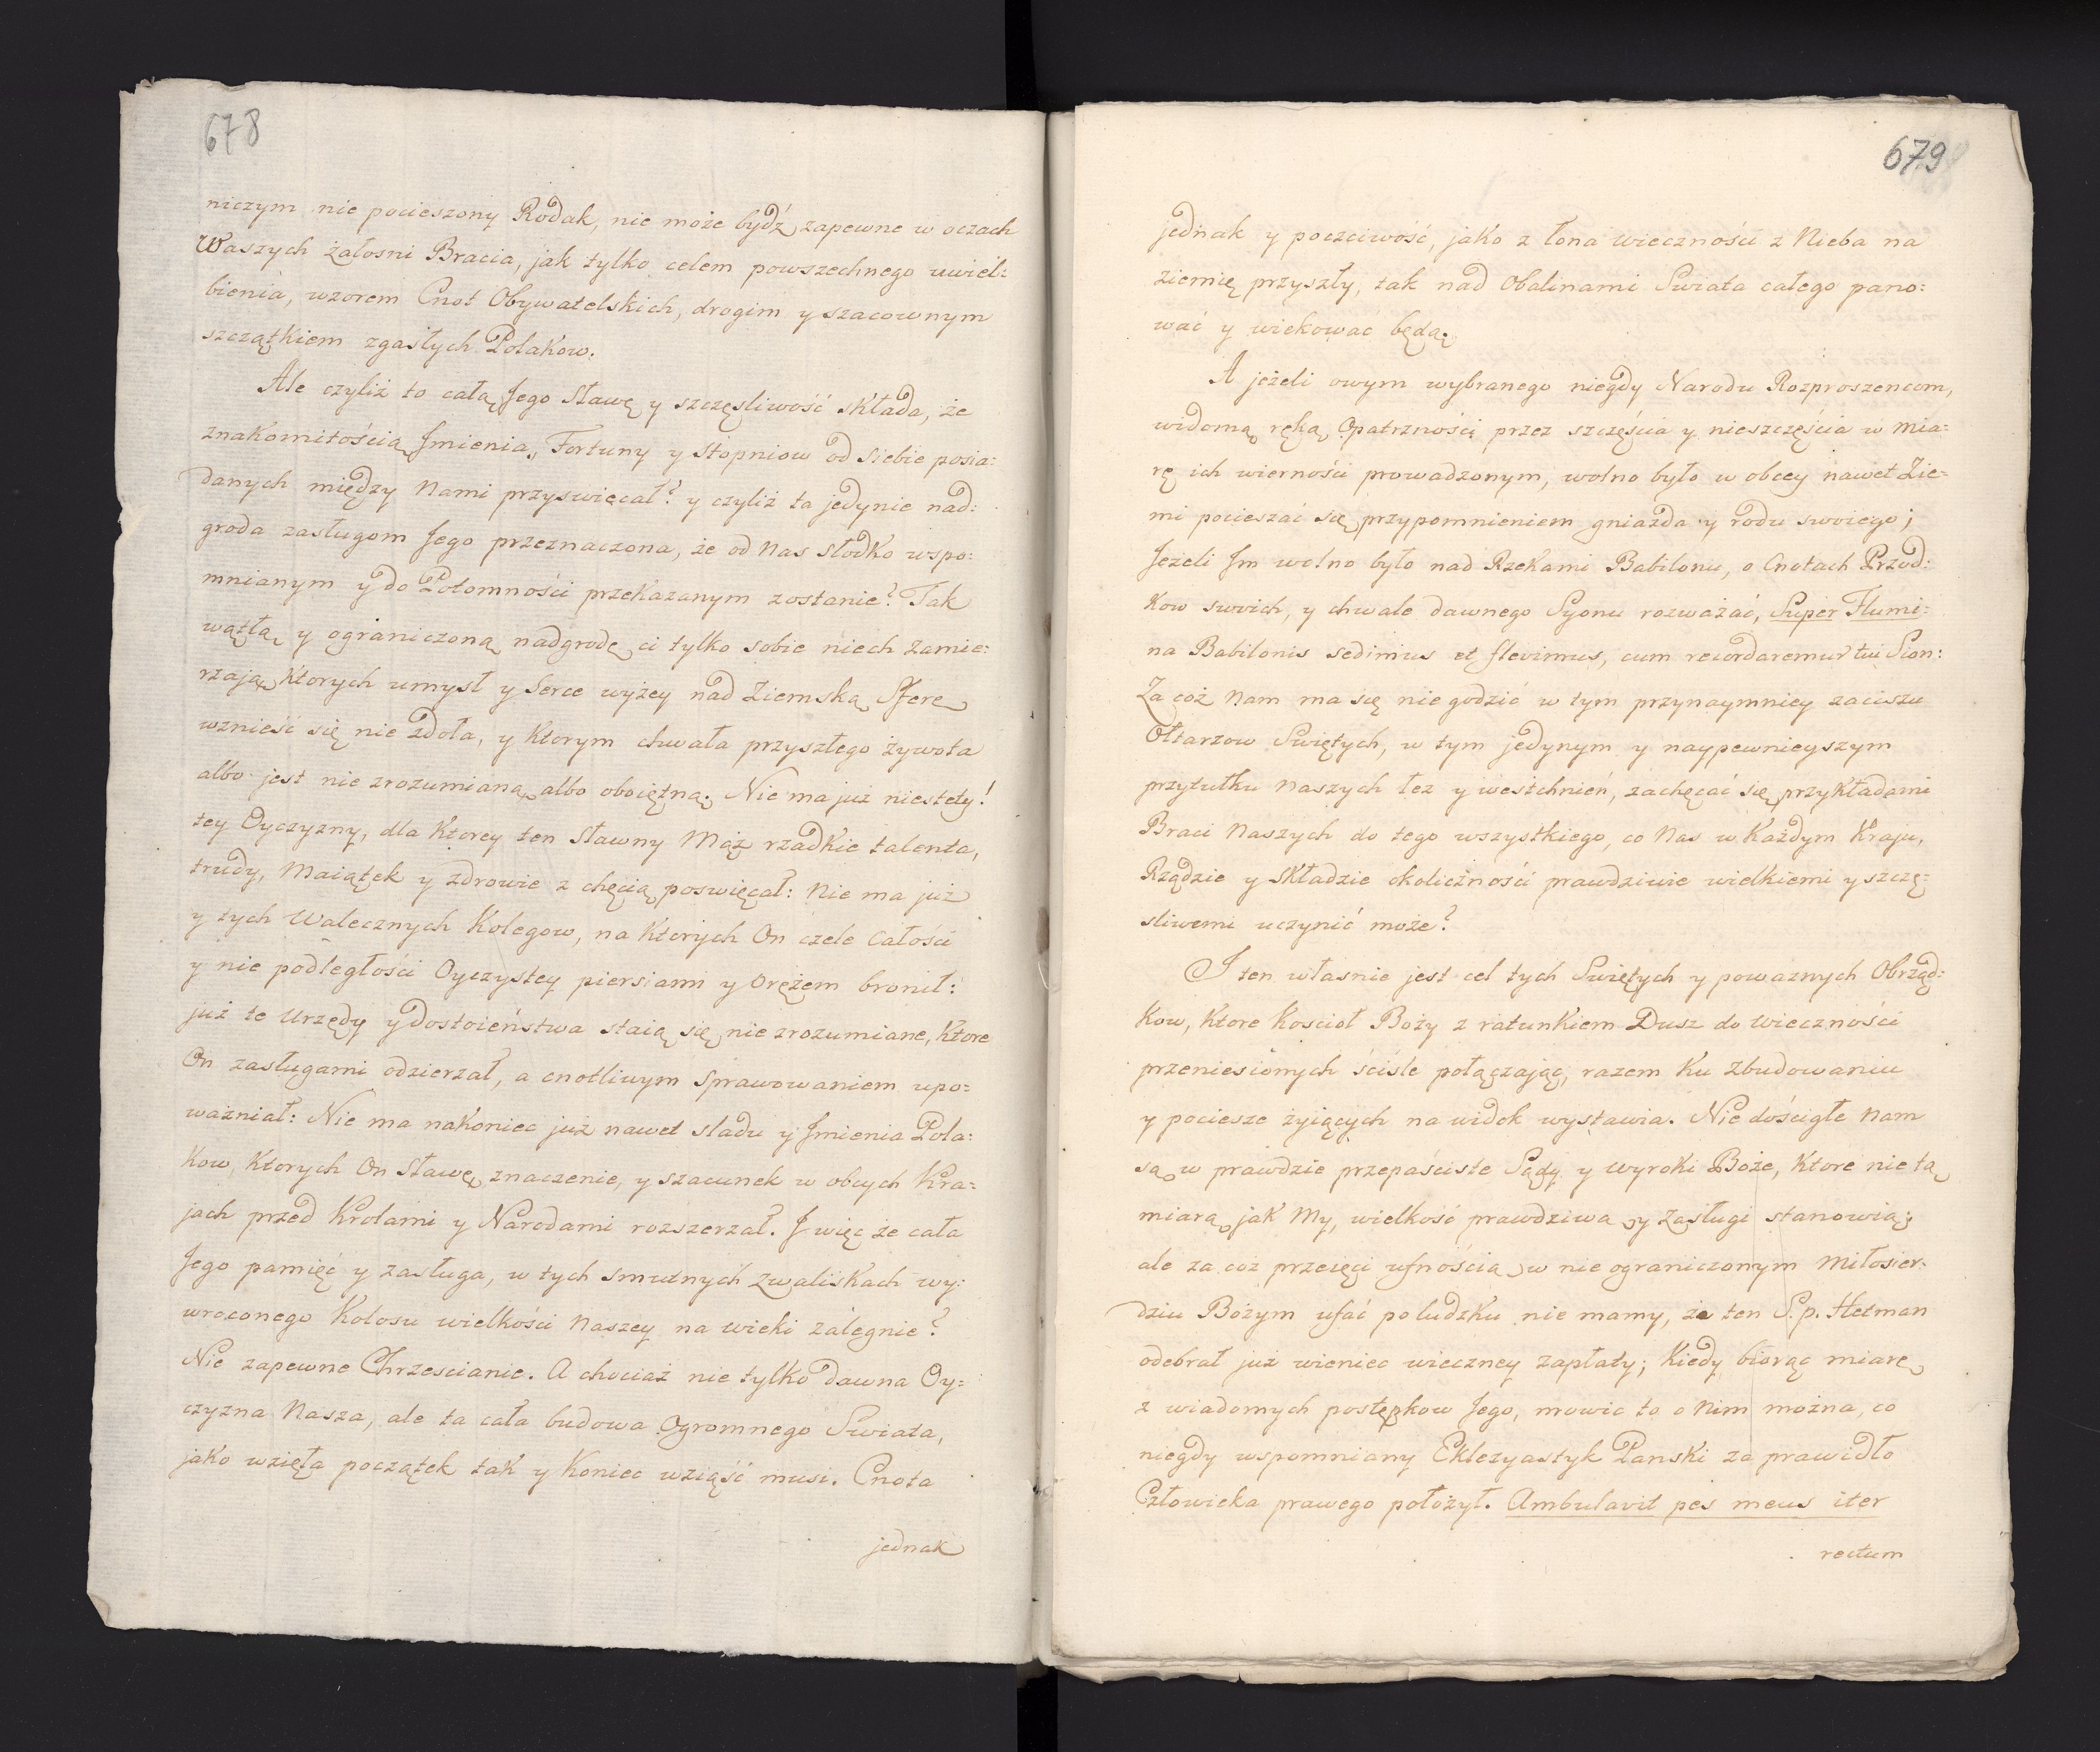 678
niczym nie pocieszony Rodak, nie może bydź zapewne w oczach
Waszych żałosni Bracia, jak tylko celem powszechnego uwiel:
bienia, wzorem Cnot Obywatelskich, drogim y szacownym
szczątkiem zgasłych Polakow.
Ale czyliż to całą Jego Sławę y szczęsliwość składa, że
znakomitością Jmienia, Fortuny y Stopniow od siebie posia:
danych między Nami przyswięcał? y czyliż ta jedynie nad:
groda zasługom Jego przeznaczona, że od Nas słodko wspo:
mnianym y do Potomności przekazanym zostanie? Tak
wątłą y ograniczoną nadgrodę ci tylko sobie niech zamie:
rzają, Ktorych umysł y Serce wyżey nad Ziemską Sferę
wznieść się nie zdoła, y Ktorym chwała przyszłego żywota
albo jest nie zrozumianą, albo obojętną. Nie ma już niestety!
tey Oyczyzny, dla Ktorey ten Sławny Mąż rzadkie talenta,
trudy, Maiątek y zdrowie z chęcią poswięcał: Nie ma już
y tych Walecznych Kolegow, na Ktorych On czele Całości
y nie podległości Oyczystey piersiami y Orężem bronił:
już te Urzędy y dostoieństwa staią się nie zrozumiane, Ktore
On zasługami odzierzał, a cnotliwym Sprawowaniem upo:
ważniał: Nie ma nakoniec już nawet sladu y Jmienia Pola:
Kow, Ktorych On Sławę, znaczenie, y szacunek w obcych Kra:
jach przed Krolami y Narodami rozszerzał. J więc że cała
Jego pamięć y zasługa, w tych smutnych zwaliskach wy:
wroconego Kolosu wielkości Naszey na wieki zalegnie?
Nie zapewne Chrzescianie. A chociaż nie tylko dawna Oy=
czyzna Nasza, ale ta cała budowa Ogromnego Swiata,
jako wzięła początek tak y Koniec wziąść musi. Cnota
jednak
679
jednak y poczciwość, jako z łona wieczności z Nieba na
ziemię przyszły, tak nad Obalinami Swiata całego pano:
wać y wiekować będą.
A jeżeli owym wybranego niegdy Narodu Rozproszencom,
widomą ręką Opatrzności przez szczęścia y nieszczęścia w mia:
rę ich wierności prowadzonym, wolno było w obcey nawet Zie=
mi pocieszać się przypomnieniem gniazda y rodu swoiego;
Jeżeli Jm wolno było nad Rzekami Babilonu, o Cnotach Przod:
Kow swoich, y chwale dawnego Syonu rozważać, Super Flumi=
na Babilonis sedimus et flevimus, cum recordaremur tui Sion:
Za coż Nam ma się nie godzić w tym przynaymniey zaciszu
Ołtarzow Swiętych, w tym jedynym y naypewnieyszym
przytułku Naszych łez y westchnień, zachęcać się przykładami
Braci Naszych do tego wszystkiego, co Nas w Każdym Kraju,
Rządzie y Składzie okoliczności prawdziwie wielkiemi y szczę=
sliwemi uczynić może?
J ten własnie jest cel tych Swiętych y poważnych Obrząd=
Kow, Ktore Kościoł Boży z ratunkiem Dusz do wieczności
przeniesionych ściśle połączając, razem Ku Zbudowaniu
y pociesze żyiących na widok wystawia. Nie dościgłe Nam
są w prawdzie przepaściste Sądy y wyroki Boże, Ktore nie tą
miarą jak My, wielkość prawdziwą y Zasługi stanowią;
ale za coż przeięci ufnością w nie ograniczonym Miłosier:
dziu Bożym ufać po ludzku nie mamy, że ten S.p. Hetman
odebrał już wieniec wieczney zapłaty; Kiedy biorąc miarę
z wiadomych postępkow Jego, mowić to o Nim można, co
niegdy wspomniany Eklezyastyk Panski za prawidło
Człowieka prawego położył. Ambulavit pes meus iter
rectum